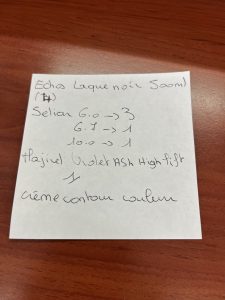 Echos Laque noir 500ml
(4)
Seliar 6.0 → 3
6.7 → 1
10.0 → 1
Hajirel Violet Ash High lift
1
crème contour couleur